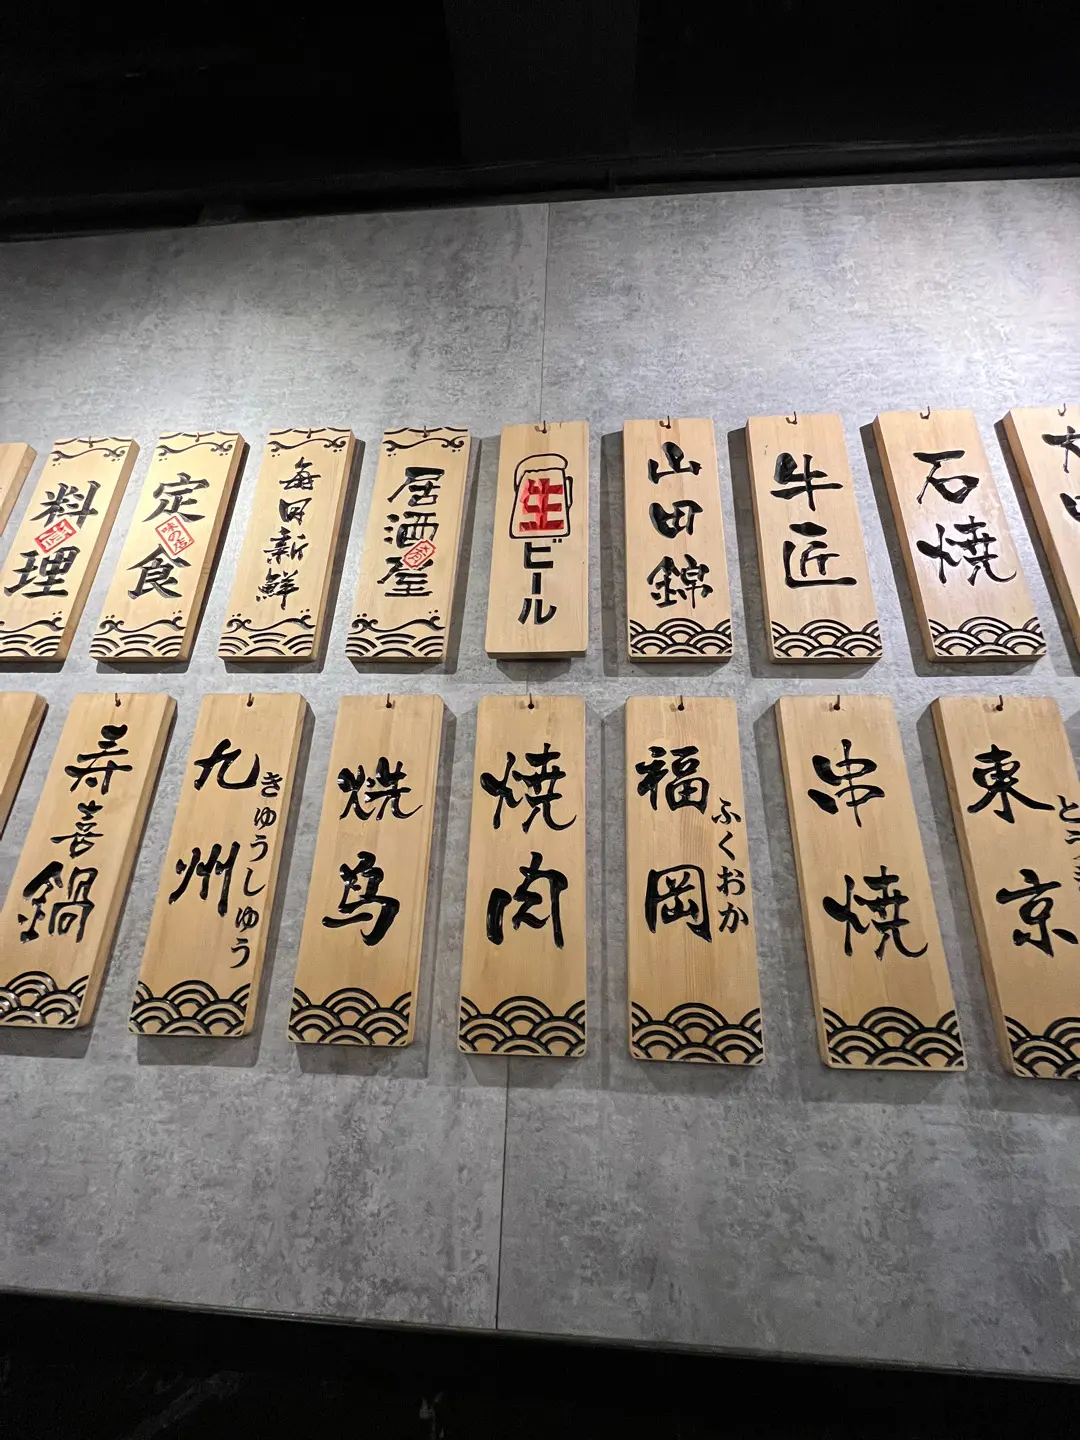 料理
定食
味の店
毎日新鮮
居酒屋
生ビール
山田錦
牛匠
石焼
寿喜鍋
九州
きゅうしゅう
焼鳥
焼肉
福岡
ふくおか
串焼
東京